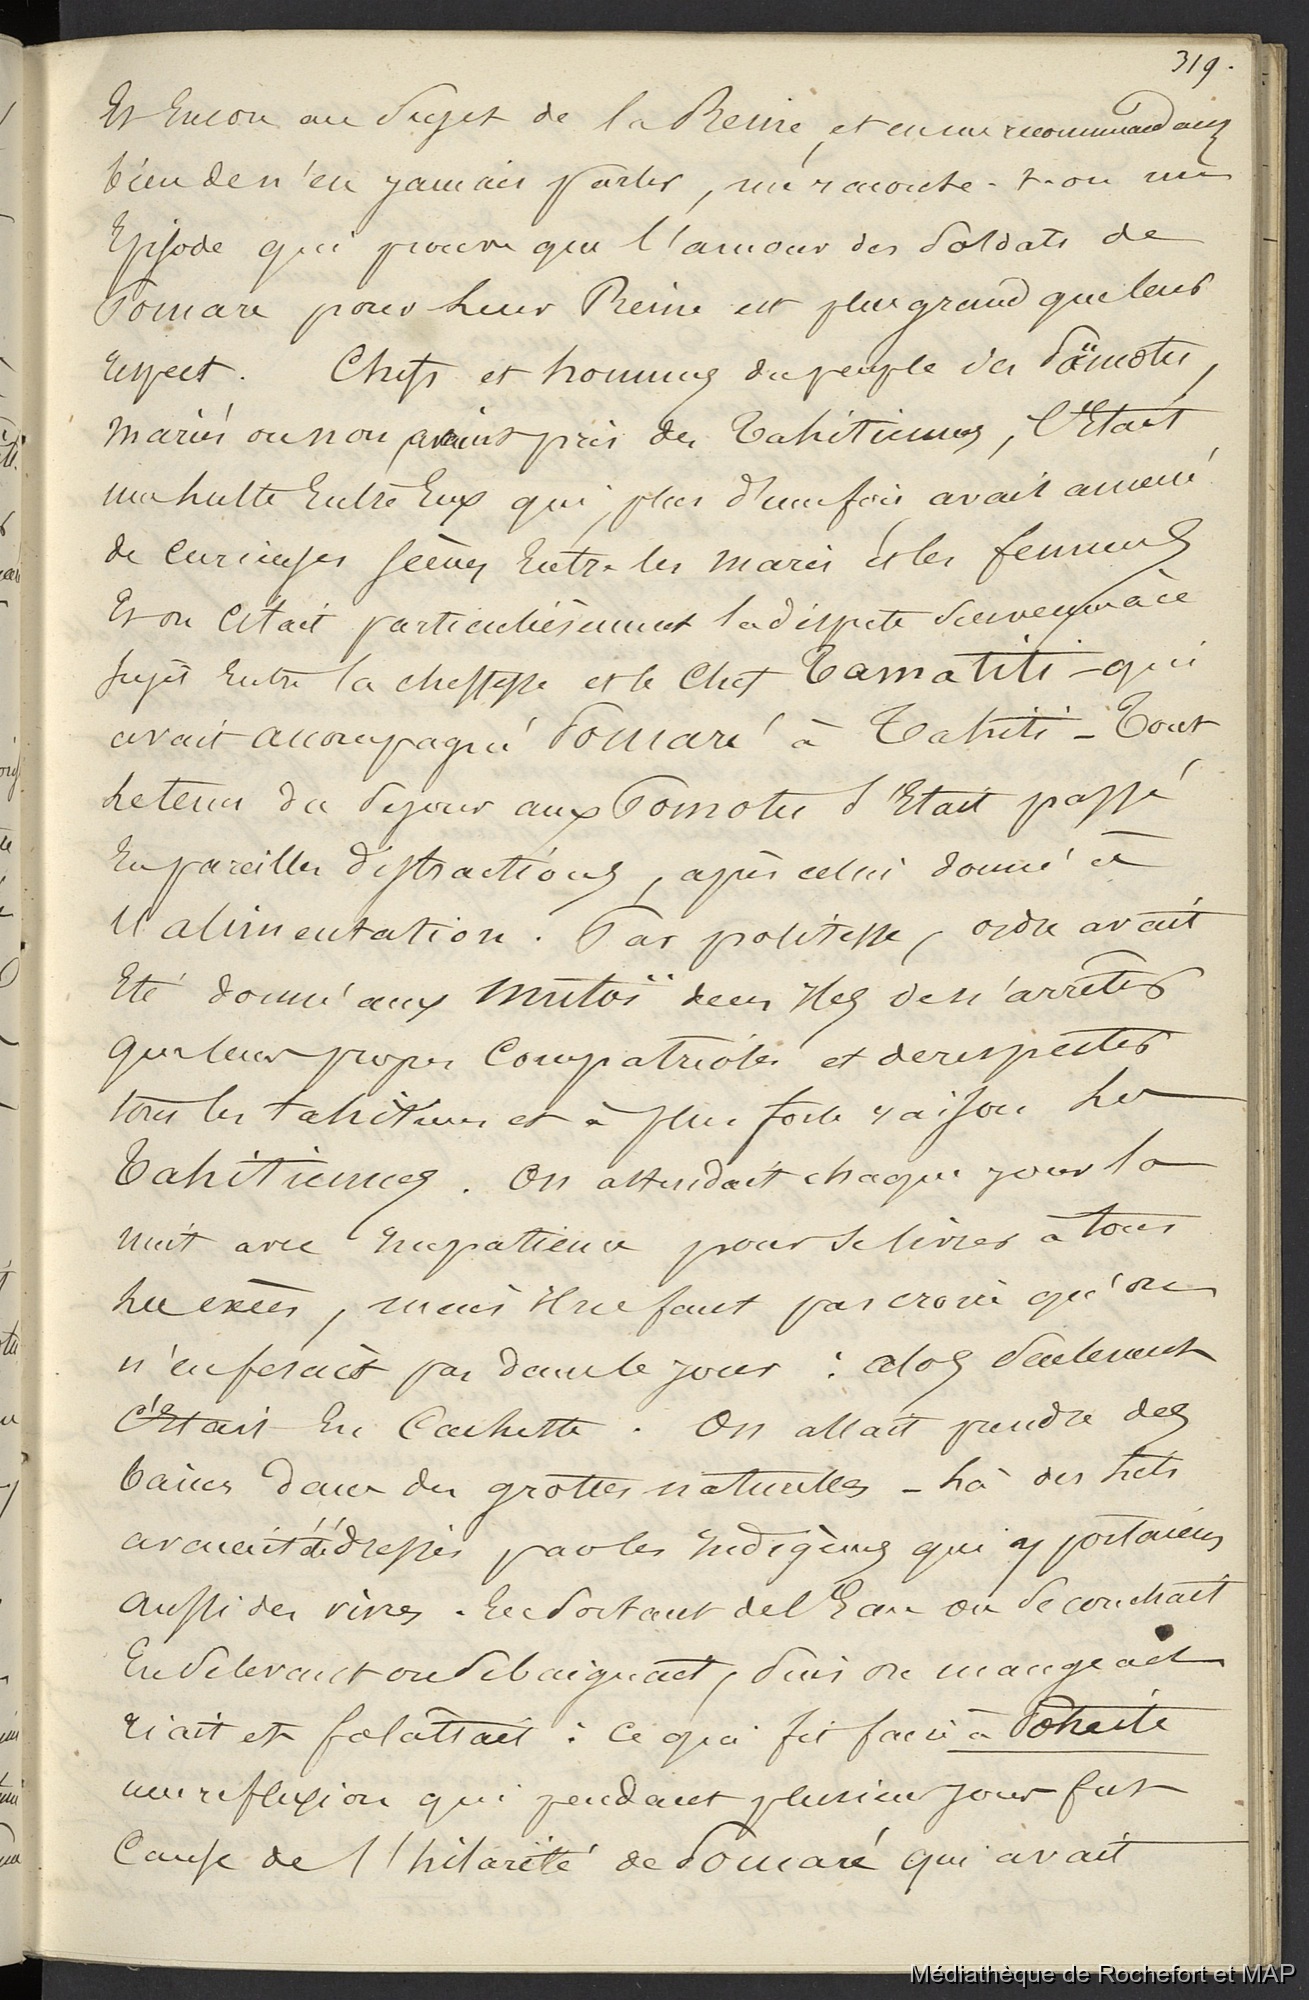 319.
Et Encore au Sujet de la Reine, et en me recommandant
bien de n'en jamais parler, me raconte-t-on un
Episode qui prouve que l'amour des Soldats de
Pomare pour leur Reine est plus grand que leur
respect. Chefs et hommes du peuple des Pömotu,
mariés ou non avaient pris des Tahitiennes, C'Etait
une lutte Entre Eux qui, plus d'une fois avait amené
de curieuses scènes Entre les maris et les femmes
Et on citait particulièrement la dispute survenue à ce
sujet Entre la cheffesse et le Chef Tamatiti - qui
avait accompagné Pomaré à Tahiti - Tout
le tems du Sejour aux Pomotu s'Etait passé
En pareilles distractions, après celui donné à
l'alimentation. Par politesse, ordre avait
Eté donné aux Mutoï de ces Iles de n'arrêter
que leurs propres Compatriotes et de respecter
tous les tahitiens et à plus forte raison les
Tahitiennes. On attendait chaque jour la
nuit avec Impatience pour se livrer à tous
les excès, mais Il ne faut pas croire qu'on
n'en ferait pas dans le jour : alors Seulement
c'Etait En Cachette. On allait prendre des
bains dans des grottes naturelles - là des lits
avaient été dressés par les Indigènes qui y portaient
aussi des vivres. En Sortant de l'Eau on se couchait
En se levant on se baignait, puis on mangeait
riait et folâtrait : ce qui fit faire à Pohuité
une reflexion qui pendant plusieurs jours fut
Cause de l'hilarité de Pomaré qui avait
Médiathèque de Rochefort et MAP